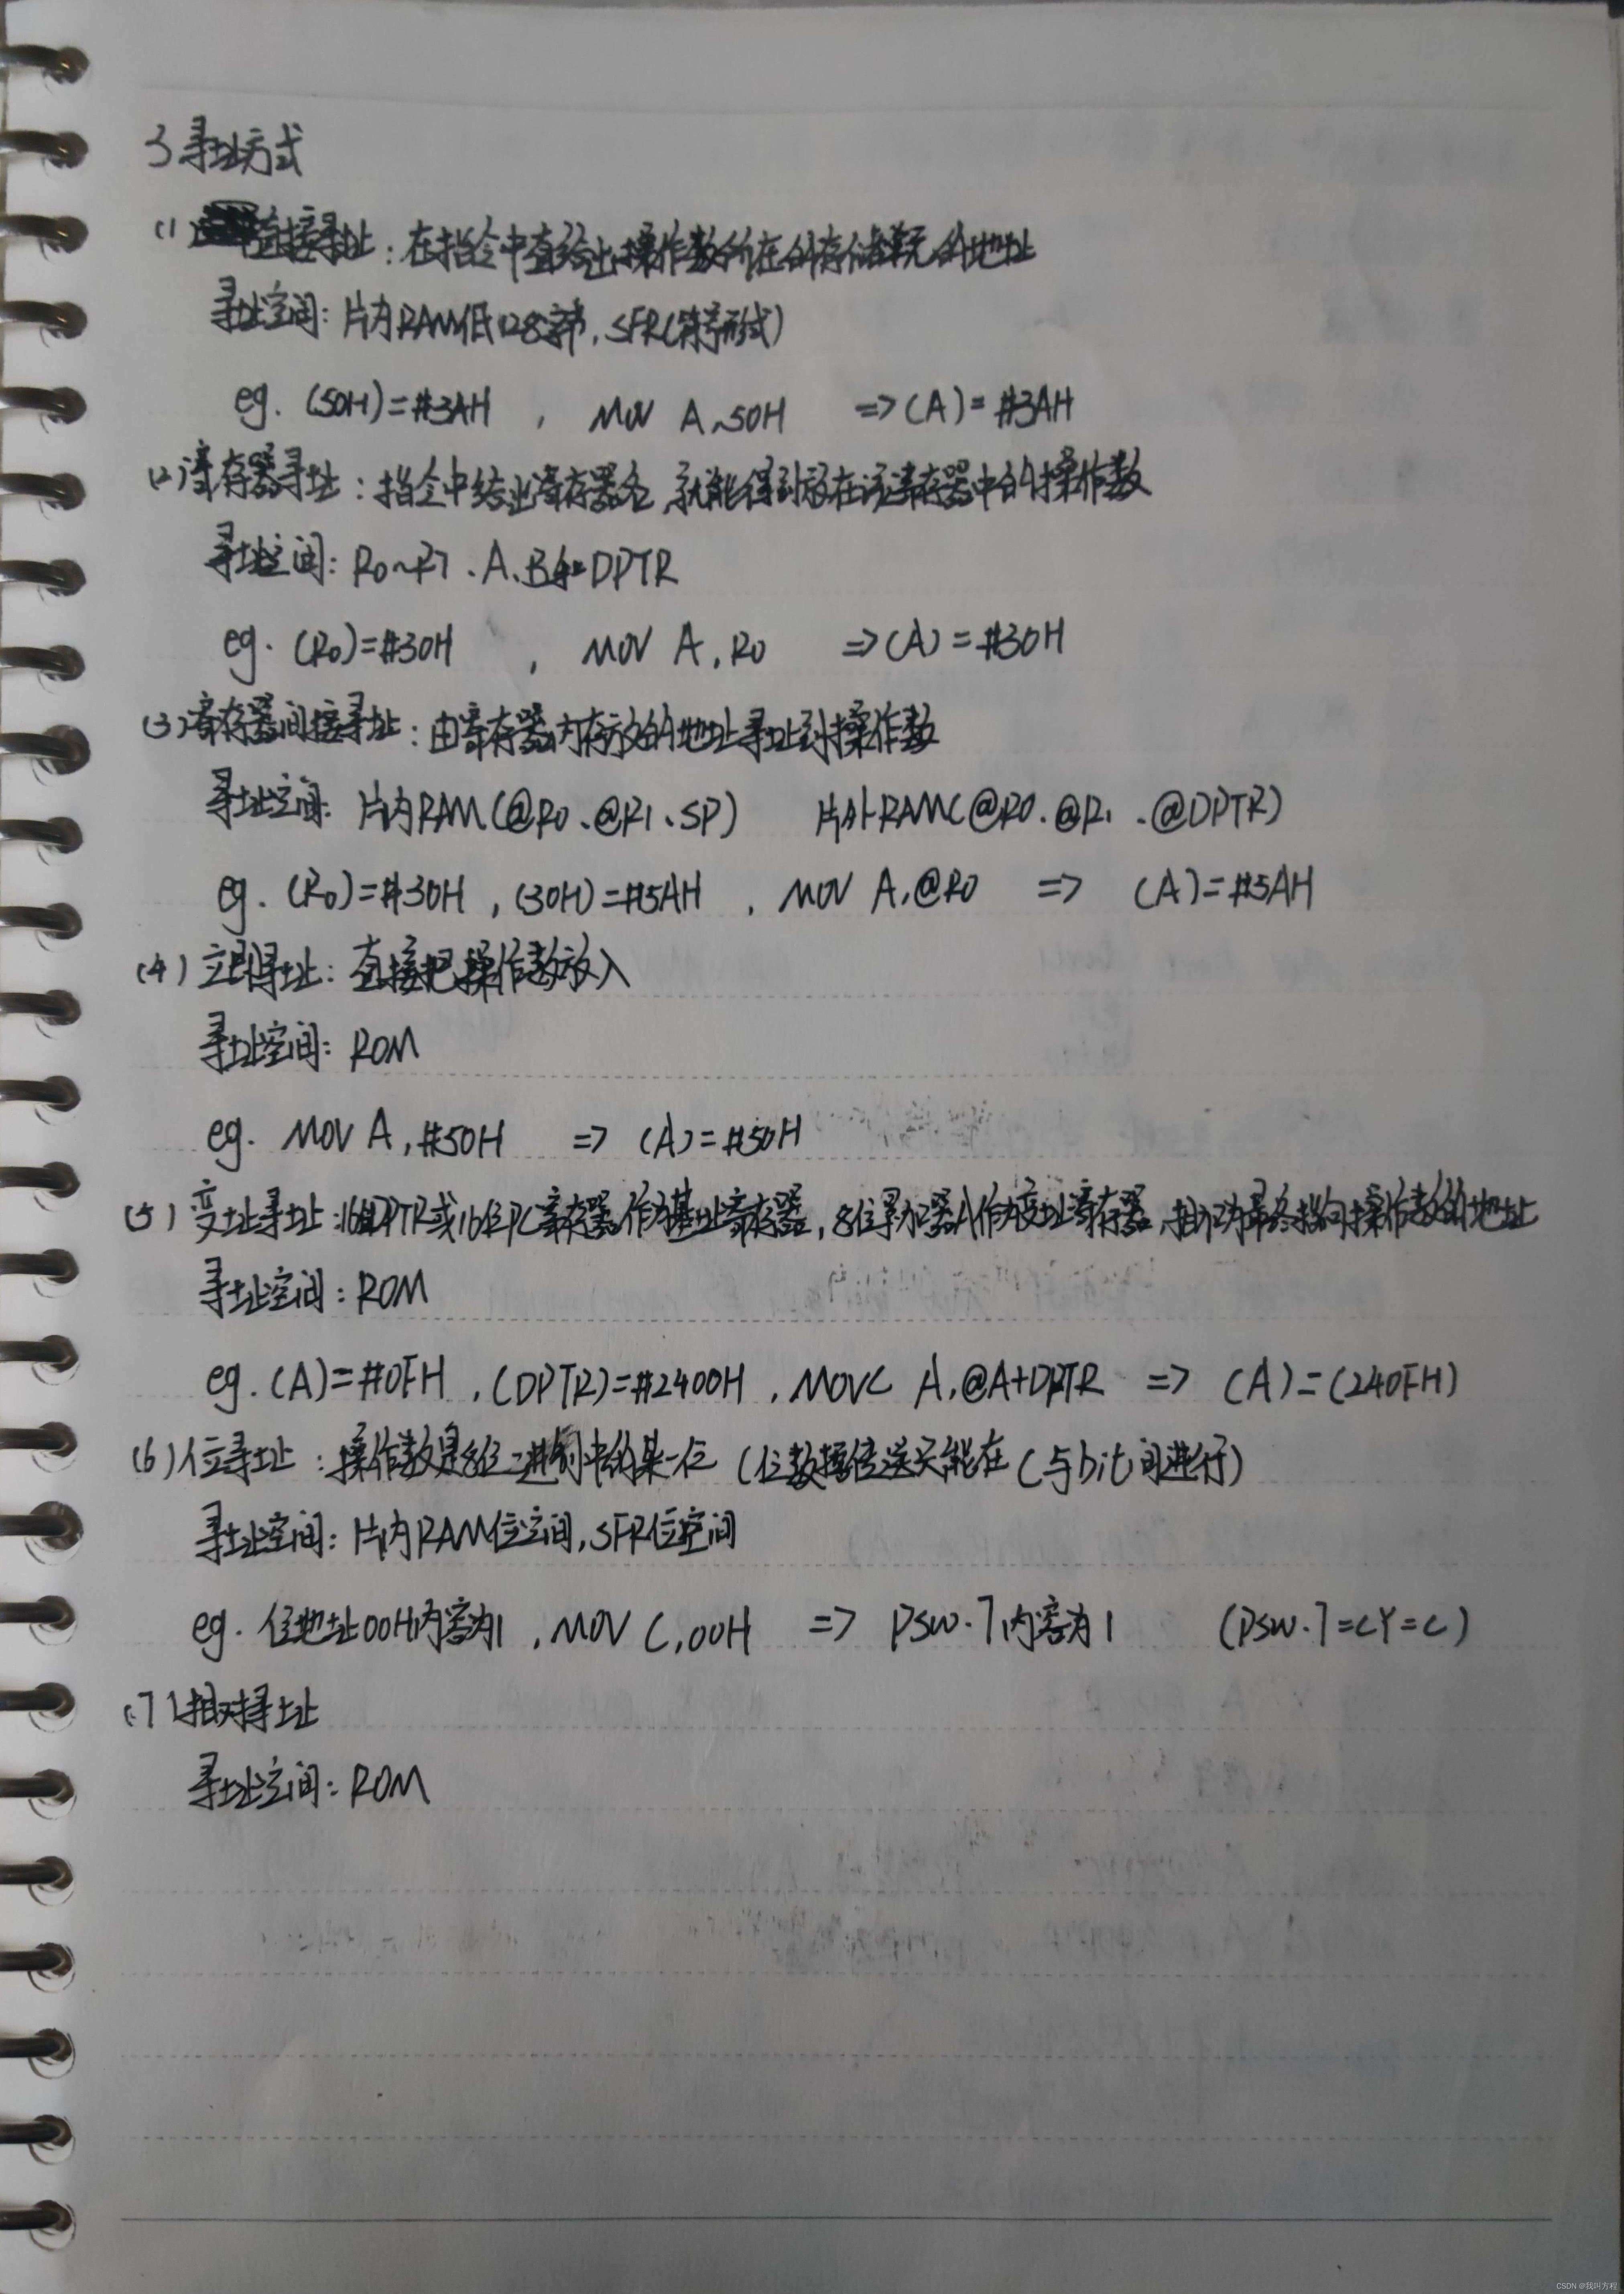 3 寻址方式
(1) 直接寻址：在指令中直给出操作数所在的存储单元的地址
寻址空间：片内RAM低128字节，SFR(符号形式)
eg. (50H)=#3AH , MOV A、50H => (A)=#3AH
(2)寄存器寻址：指令中给出寄存器名，就能得到放在该寄存器中的操作数
寻址空间：R0~R7 、A、B和DPTR
eg. (R0)=#30H , MOV A,R0 => (A)=#30H
(3)寄存器间接寻址：由寄存器内存放的地址寻址到操作数
寻址空间：片内RAM(@R0、@R1、SP) 片外RAM(@R0、@R1、@DPTR)
eg. (R0)=#30H , (30H)=#5AH , MOV A,@R0 => (A)=#5AH
(4) 立即寻址：直接把操作数放入
寻址空间：ROM
eg. MOV A,#50H => (A)=#50H
(5) 变址寻址：16位DPTR或16位PC寄存器作为基址寄存器，8位累加器A作为变址寄存器，相加为最终指向操作数的地址
寻址空间：ROM
eg. (A)=#0FH , (DPTR)=#2400H , MOVC A,@A+DPTR => (A)=(240FH)
(6)位寻址：操作数是8位二进制中的某一位 (位数据传送只能在C与bit间进行)
寻址空间：片内RAM位空间，SFR位空间
eg. 位地址00H内容为1 , MOV C,00H => PSW.7内容为1 (PSW.7=CY=C)
(7)相对寻址
寻址空间：ROM
CSDN @我叫方程